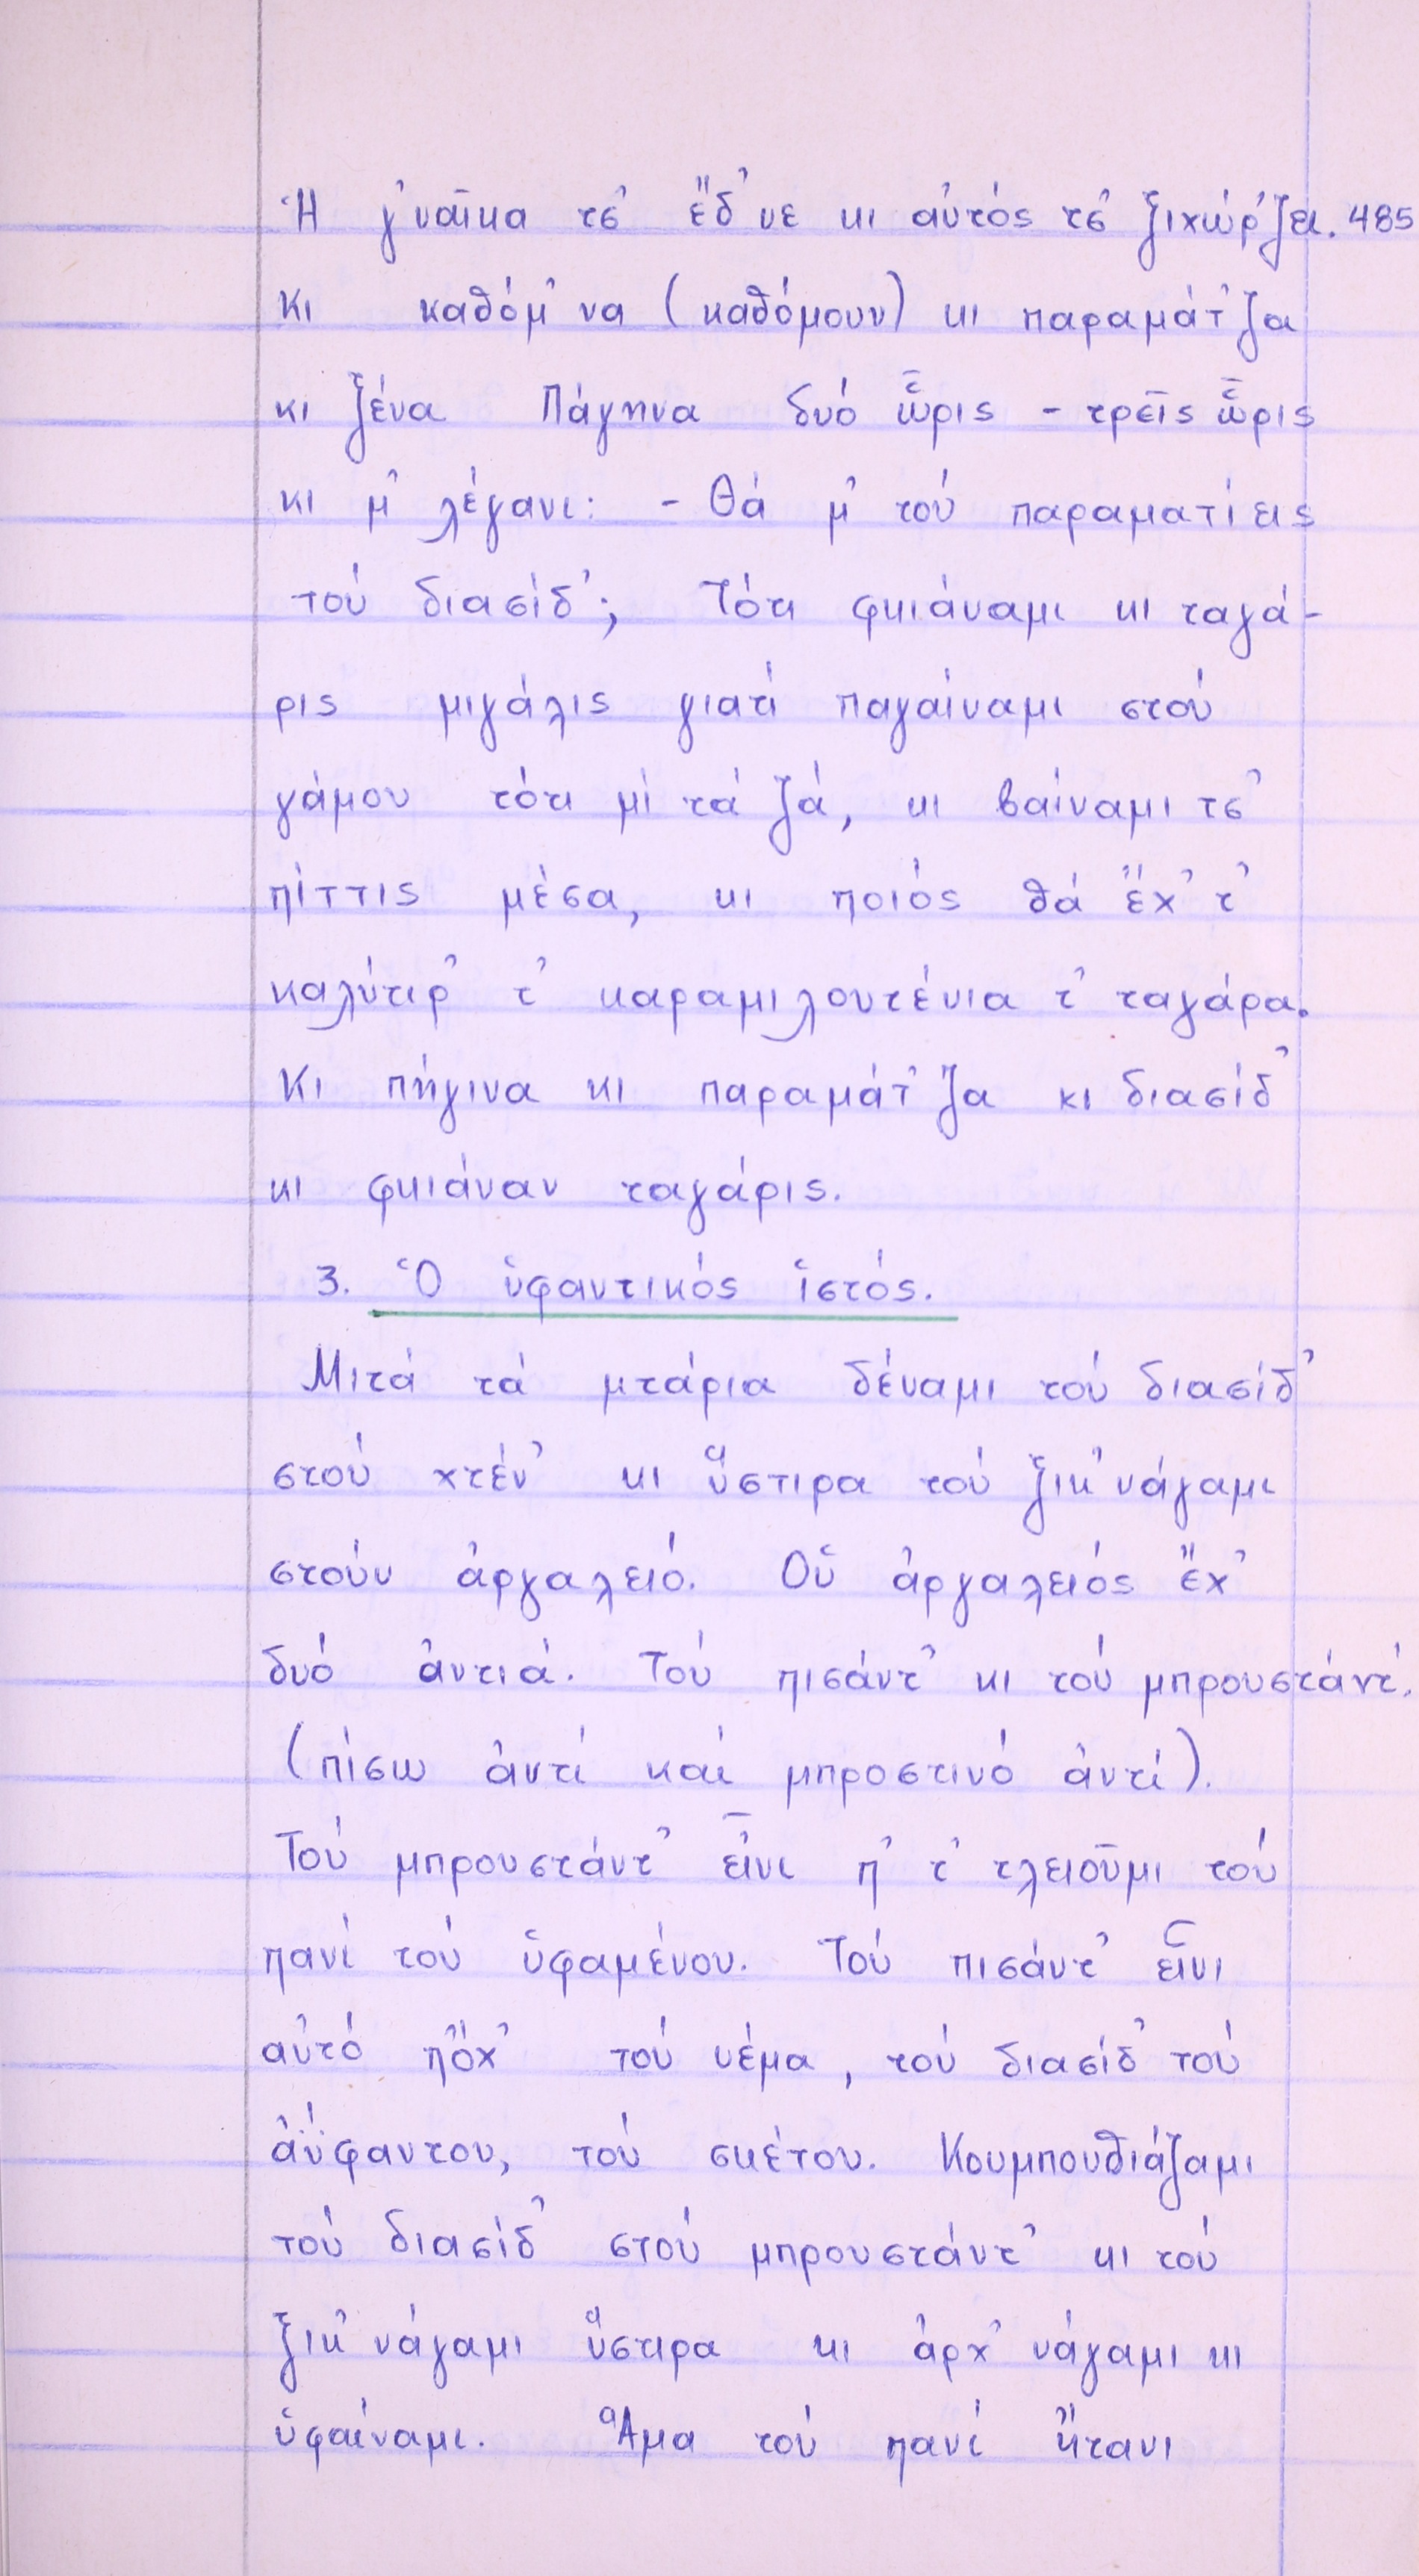 Ἡ γ᾽ναῖκα τσ᾽ ἔδ᾽νε κι αὐτός τσ᾽ ξιχώρ᾽ζει. 485
κι καθόμ᾽να (καθόμουν) κι παραμάτ᾽ζα
κι ξένα Πάγηνα δυό ὧρις - τρεῖς ὧρις
κι μ᾽ λέγανι: - Θά μ᾽ τού παραματίεις
τού διασίδ᾽; Τότι φκιάναμι κι ταγά-
ρις μιγάλις γιατί παγαίναμι στού
γάμου τότι μί τά ζά, κι βαίναμι τσ᾽
πίττις μέσα, κι ποιός θά ἔχ᾽ τ᾽
καλύτιρ᾽ τ᾽ καραμιλουτένια τ᾽ ταγάρα.
Κι πήγινα κι παραμάτ᾽ζα κι διασίδ᾽
κι φκιάναν ταγάρις.
3. Ὁ ὑφαντικός ἱστός.
Μιτά τά μτάρια δέναμι τού διασίδ᾽
στού χτέν᾽ κι ὕστιρα τού ξικ᾽νάγαμι
στούν ἀργαλειό. Οὑ ἀργαλειός ἔχ᾽
δυό ἀντιά. Τού πισάντ᾽ κι τού μπρουστάντ᾽.
(πίσω ἀντί καί μπροστινό ἀντί).
Τού μπρουστάντ᾽ εἶνι π᾽ τ᾽ τλειοῦμι τού
πανί τού ὑφαμένου. Τού πισάντ᾽ εἶνι
αὐτό πὄχ᾽ τού νέμα, τού διασίδ᾽ τού
ἀΰφαντου, τού σκέτου. Κουμπουθιάζαμι
τού διασίδ᾽ στού μπρουστάντ᾽ κι τού
ξικ᾽νάγαμι ὕστιρα κι ἀρχ᾽νάγαμι κι
ὑφαίναμι. Ἅμα τού πανί ἤτανι